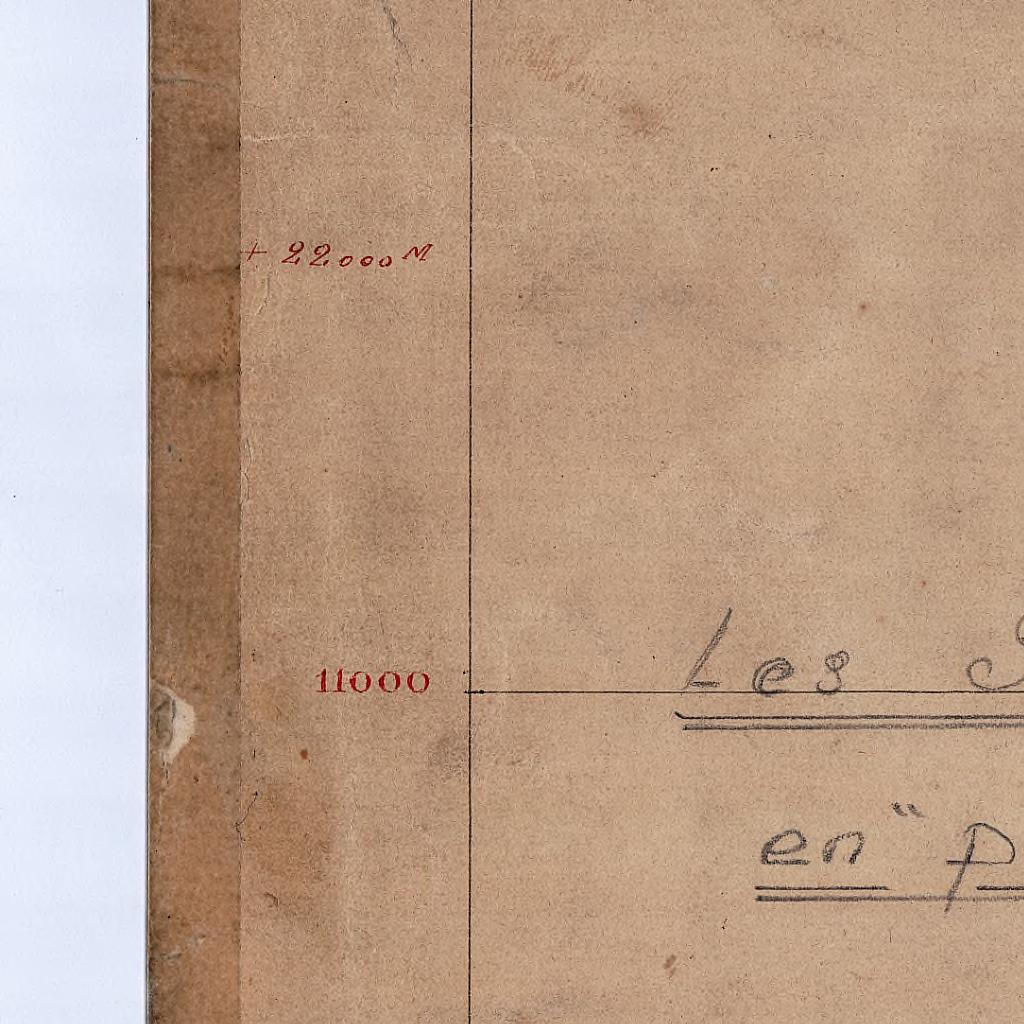 + 22000 M
11000
Les
en "